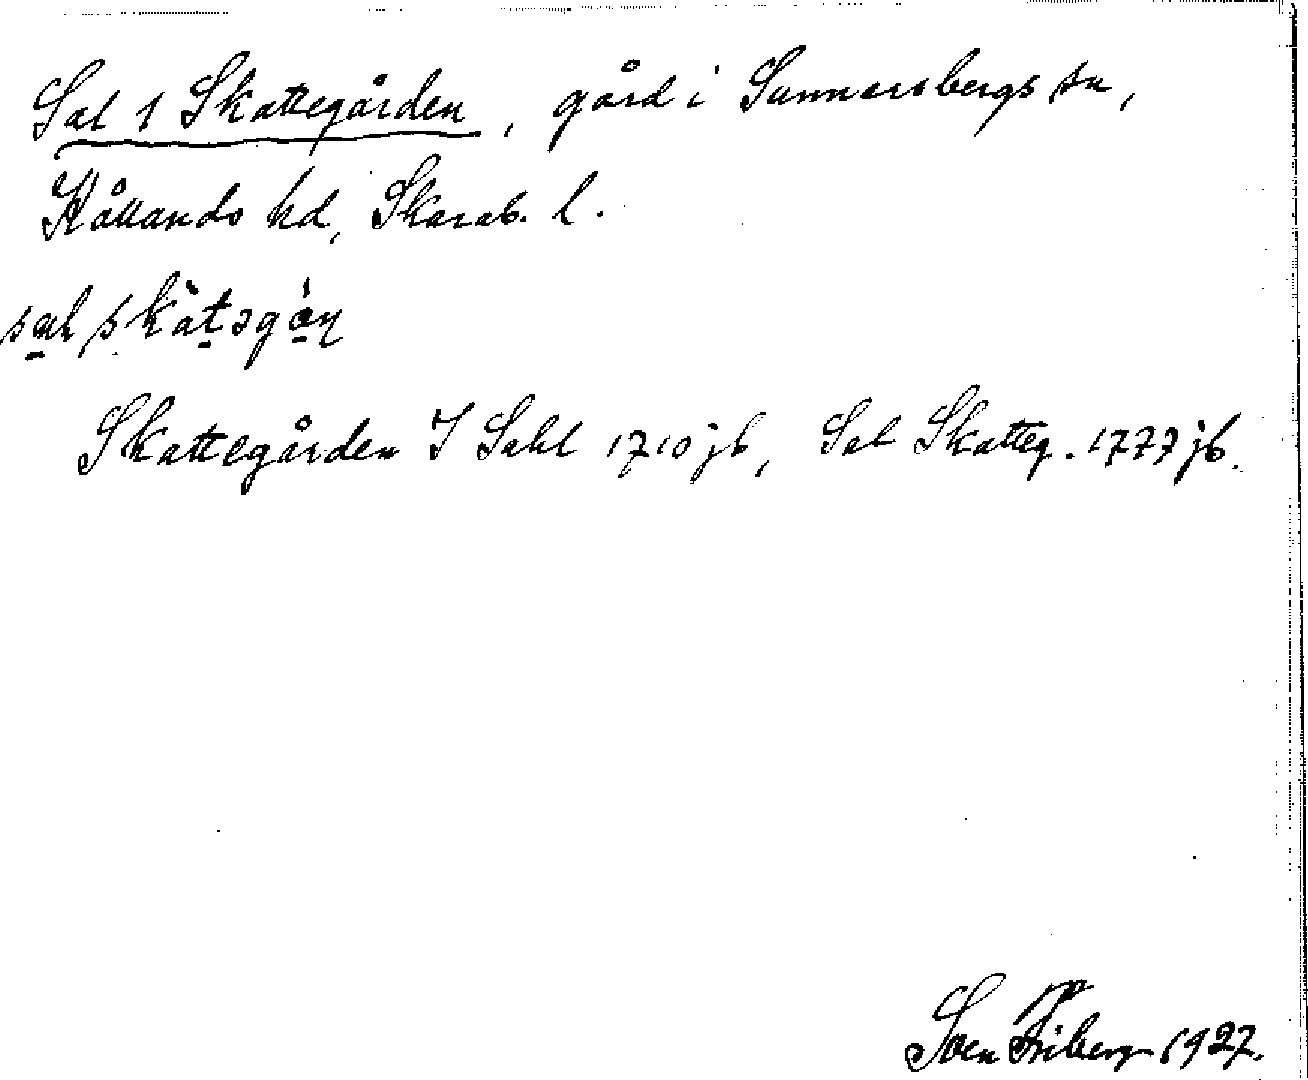 Sal 1 Skattegården, gård i Sunnersbergs sn,
Kållands hd, Skarab. l.
sal skàtəgán
Skattegården I Sahl 1710 jb, Sal Skatteg. 1777 jb.
Sven Friberg 1927.